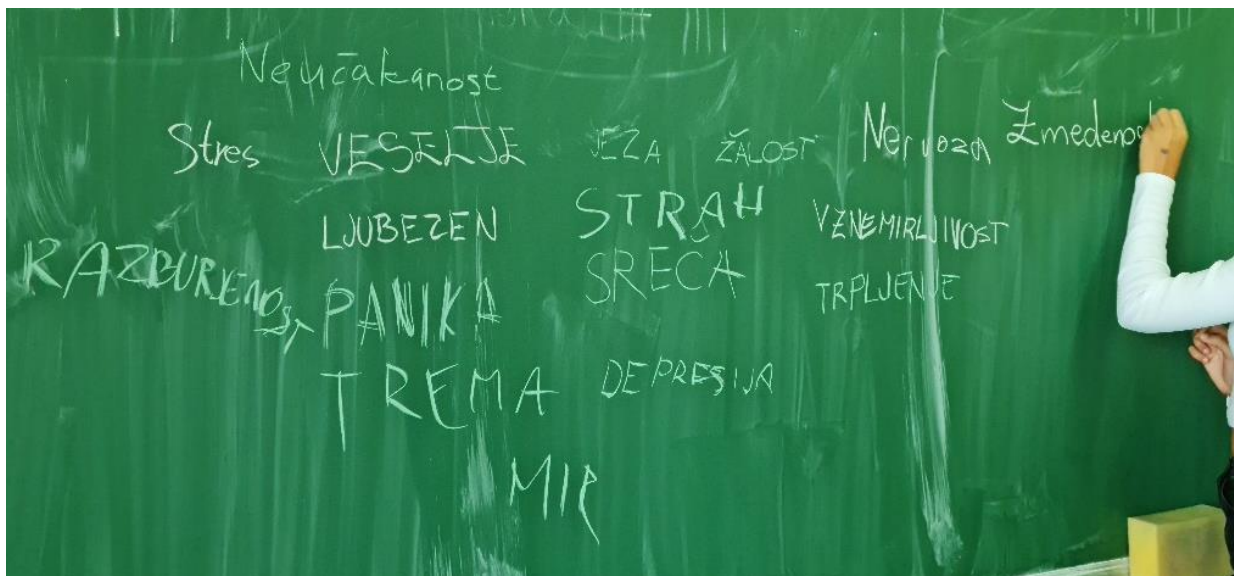 Neučakanost
Stres VESELJE JEZA ŽALOST Nervoza Zmedenost
LJUBEZEN STRAH VZNEMIRLJIVOST
RAZBURJENOST PANIKA SREČA TRPLJENJE
TREMA DEPRESIJA
MIR